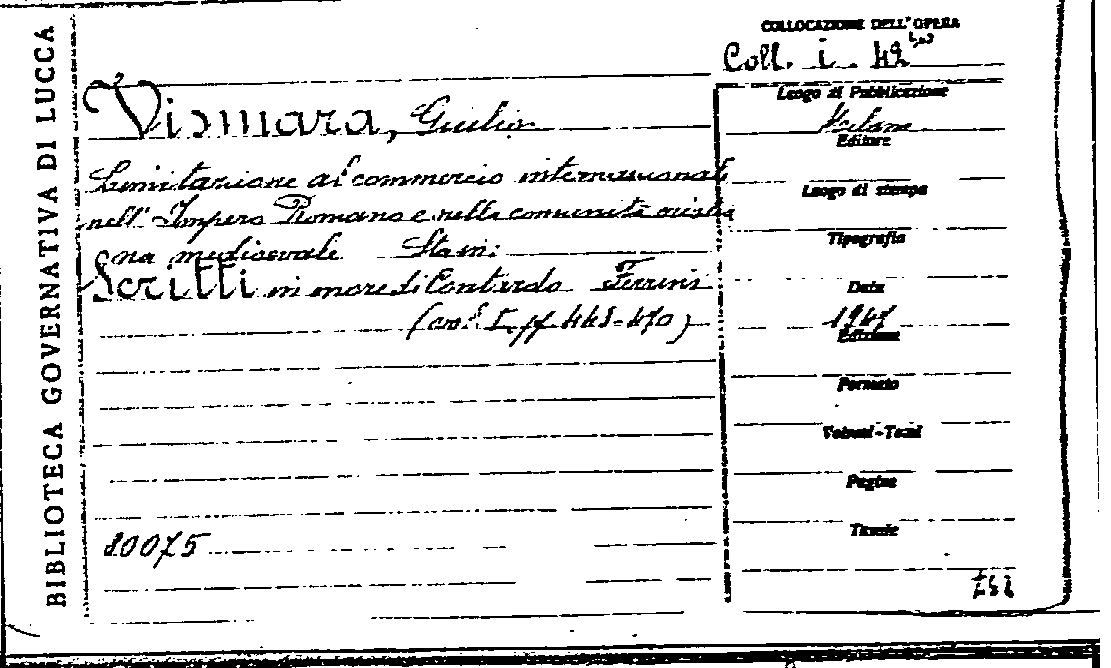 BIBLIOTECA GOVERNATIVA DI LUCCA
COLLOCAZIONE DELL'OPERA
Coll. i. 42
Vismara, Giulio
Limitazione al commercio internazionale
nell'Impero Romano e nella comunità cristia
na medioevale Sta in:
Scritti in onore di Contardo Ferrini
(vol. I, pp. 443-470)
80075
Luogo di Pubblicazione
Milano
Editore
Luogo di stampa
Tipografia
Data
1947
Edizione
Formato
Volumi-Tomi
Pagine
Tavole